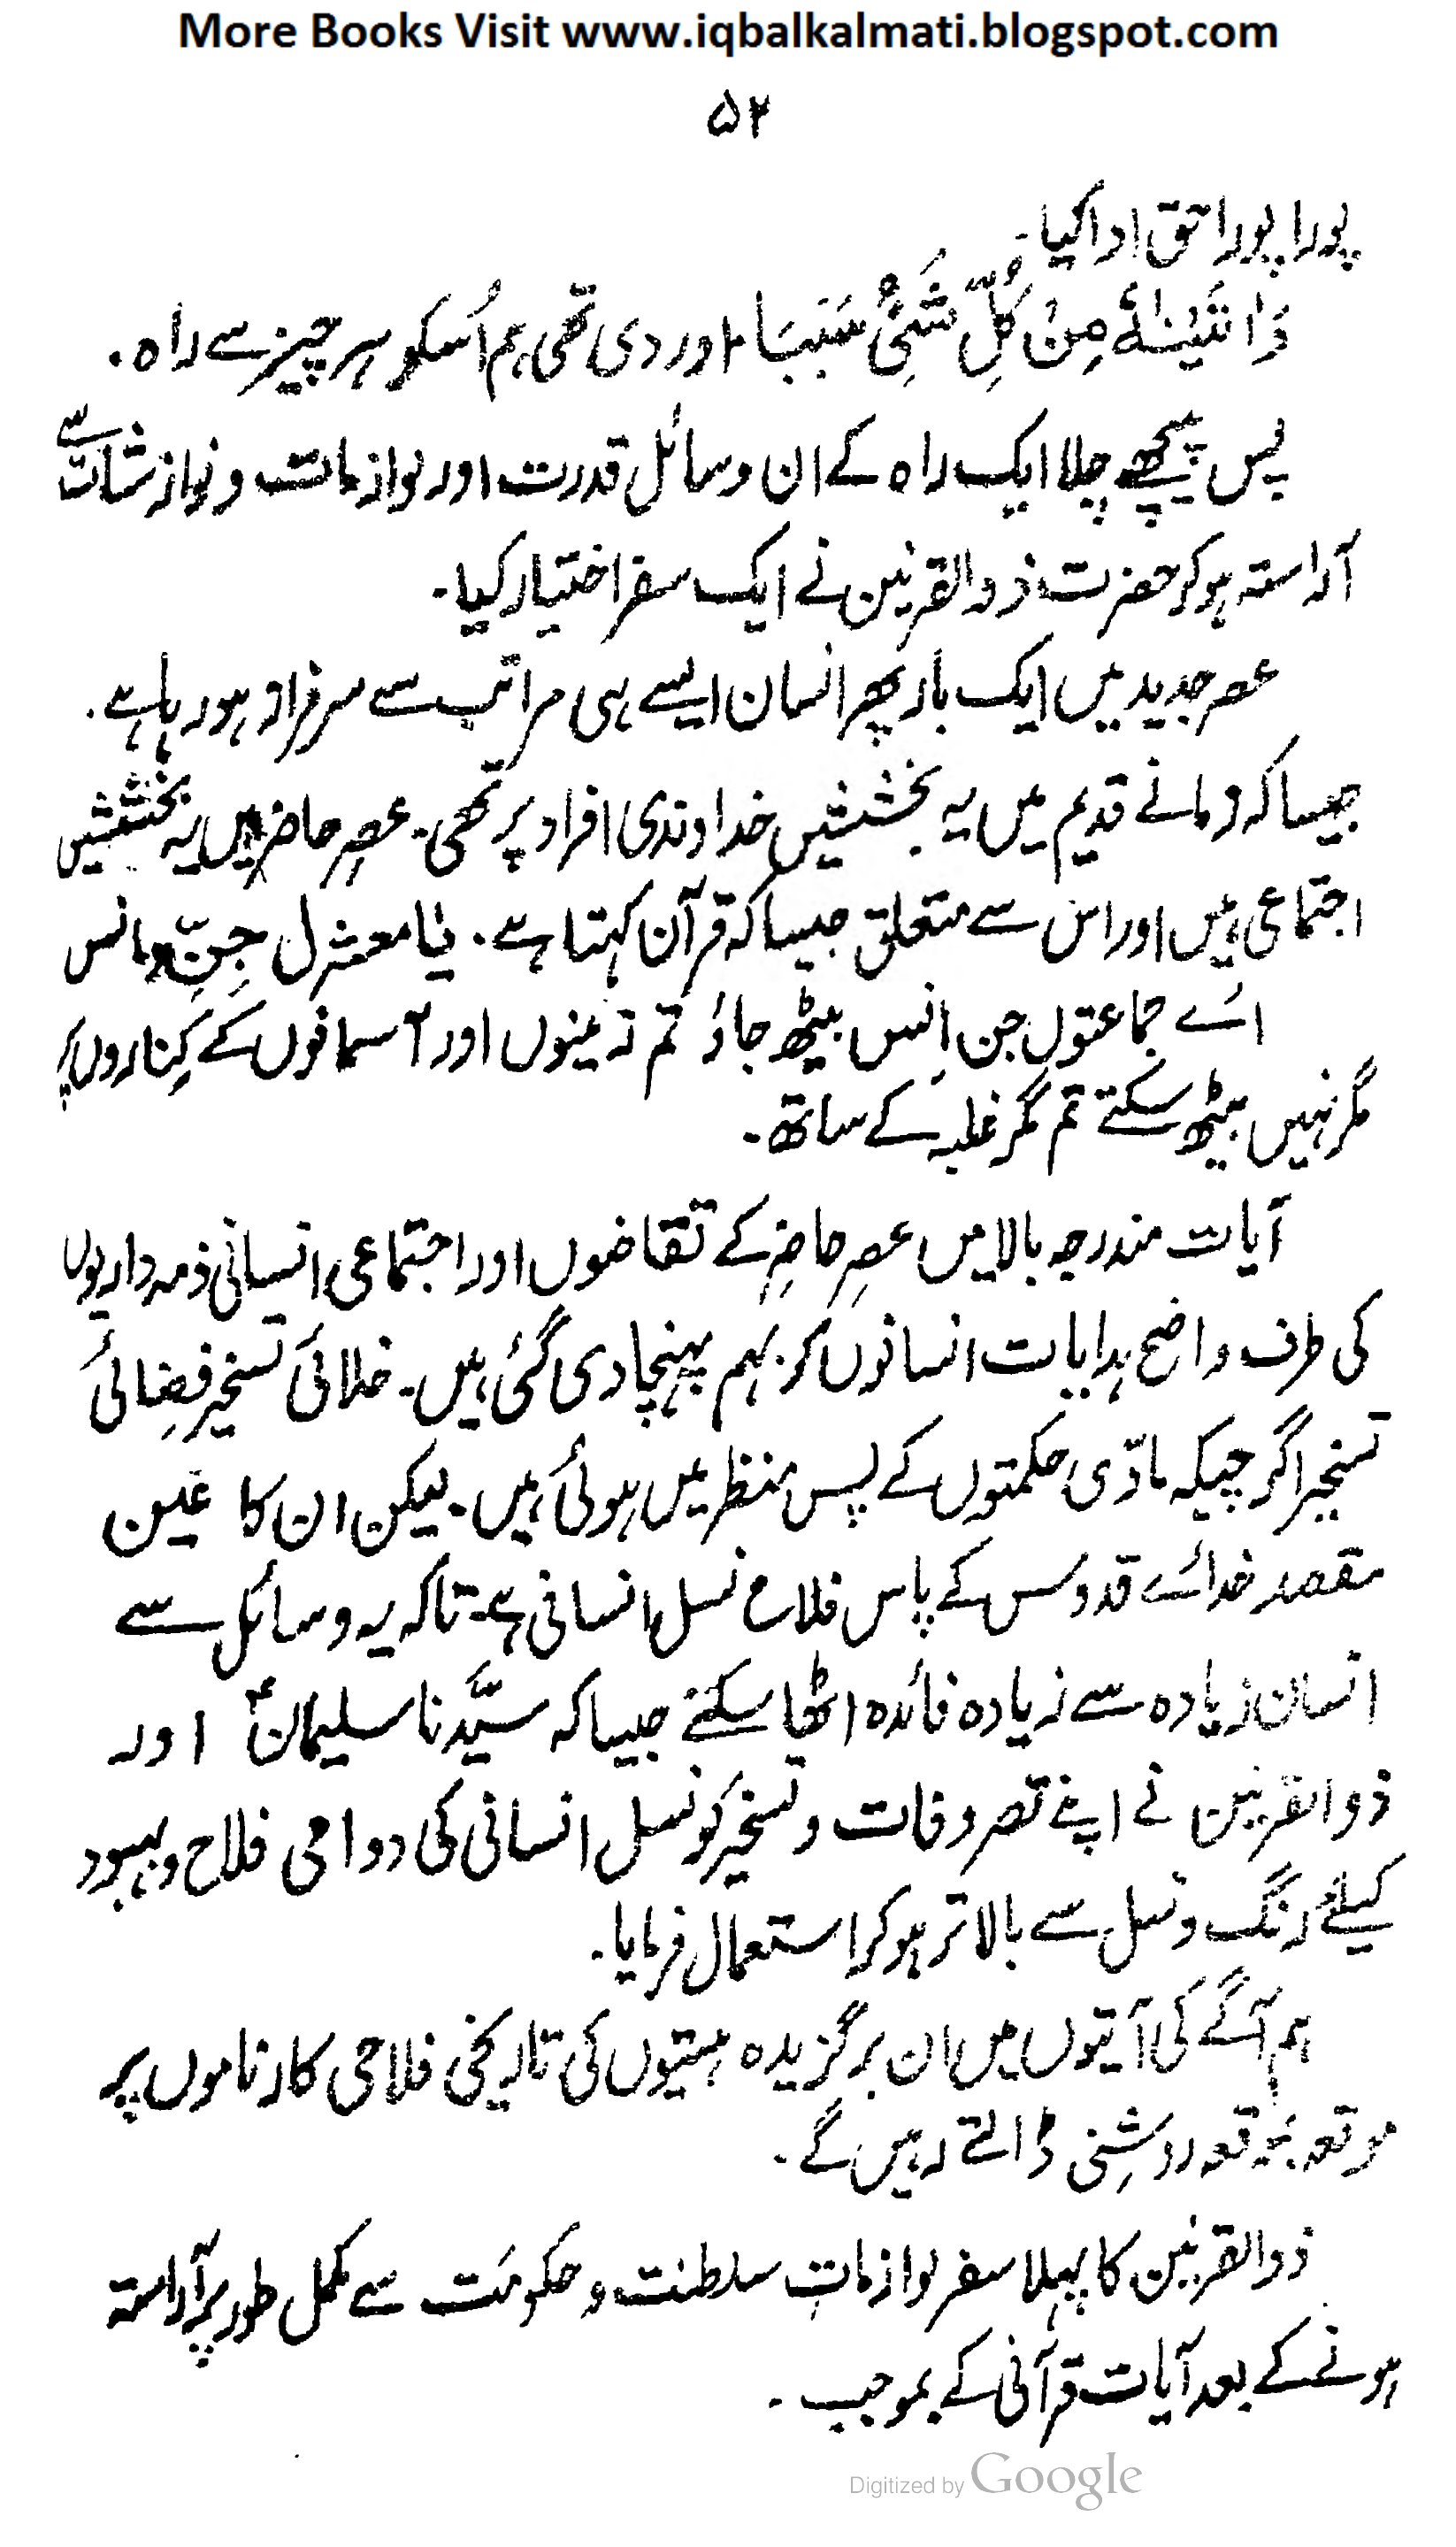 More Books Visit www.iqbalkalmati.blogspot.com
۵۲
پورا پورا حق ادا کیا۔
وَاٰتَیْنٰہُ مِنْ کُلِّ شَیْءٍ سَبَبًا اور دی تھی ہم اُسکو ہر چیز سے راہ۔
پس پیچھے چلا ایک راہ کے ان وسائل قدرت اور لوازمات و نوازشات سے
آراستہ ہو کر حضرت ذوالقرنین نے ایک سفر اختیار کیا۔
عصر جدید میں ایک بار پھر انسان ایسے ہی مراتب سے سرفراز ہو رہا ہے۔
جیسا کہ زمانے قدیم میں یہ بخششیں خداوندی افراد پر تھی۔ عصرِ حاضر میں یہ بخششیں
اجتماعی ہیں اور اس سے متعلق جیسا کہ قرآن کہتا ہے۔ یٰا معشرل جِنِّ وانس
اے جماعتوں جن اِنس بیٹھ جاؤ تم زمینوں اور آسمانوں کے کِناروں پر
مگر نہیں بیٹھ سکتے تم مگر غلبہ کے ساتھ۔
آیات مندرجہ بالا میں عصرِ حاضِر کے تقاضوں اور اجتماعی انسانی ذمہ داریوں
کی طرف واضح ہدایات انسانوں کو بہم پہنچا دی گئی ہیں۔ خلائی تسخیر فِضائی
تسخیر اگرچیکہ مادّی حکمتوں کے پس منظر میں ہوئی ہیں۔ لیکن ان کا عَین
مقصد خدائے قدوس کے پاس فلاح نسل انسانی ہے۔ تاکہ یہ وسائل سے
انسان زیادہ سے زیادہ فائدہ اٹھا سکے جیسا کہ سیّدنا سلیمانؑ اور
ذوالقرنین نے اپنے تصروفات و تسخیر کو نسل انسانی کی دوامی فلاح و بہبود
کیلئے رنگ و نسل سے بالاتر ہو کر استعمال فرمایا۔
ہم آگے کی آیتوں میں ان برگزیدہ ہستیوں کی تاریخی فلاحی کارناموں پر
موقعہ بموقعہ روشِنی ڈالتے رہیں گے۔
ذوالقرنین کا پہلا سفر لوازماتِ سلطنت و حکومَت سے مکمل طور پر آراستہ
ہونے کے بعد آیات قرآنی کے بموجب۔
Digitized by Google